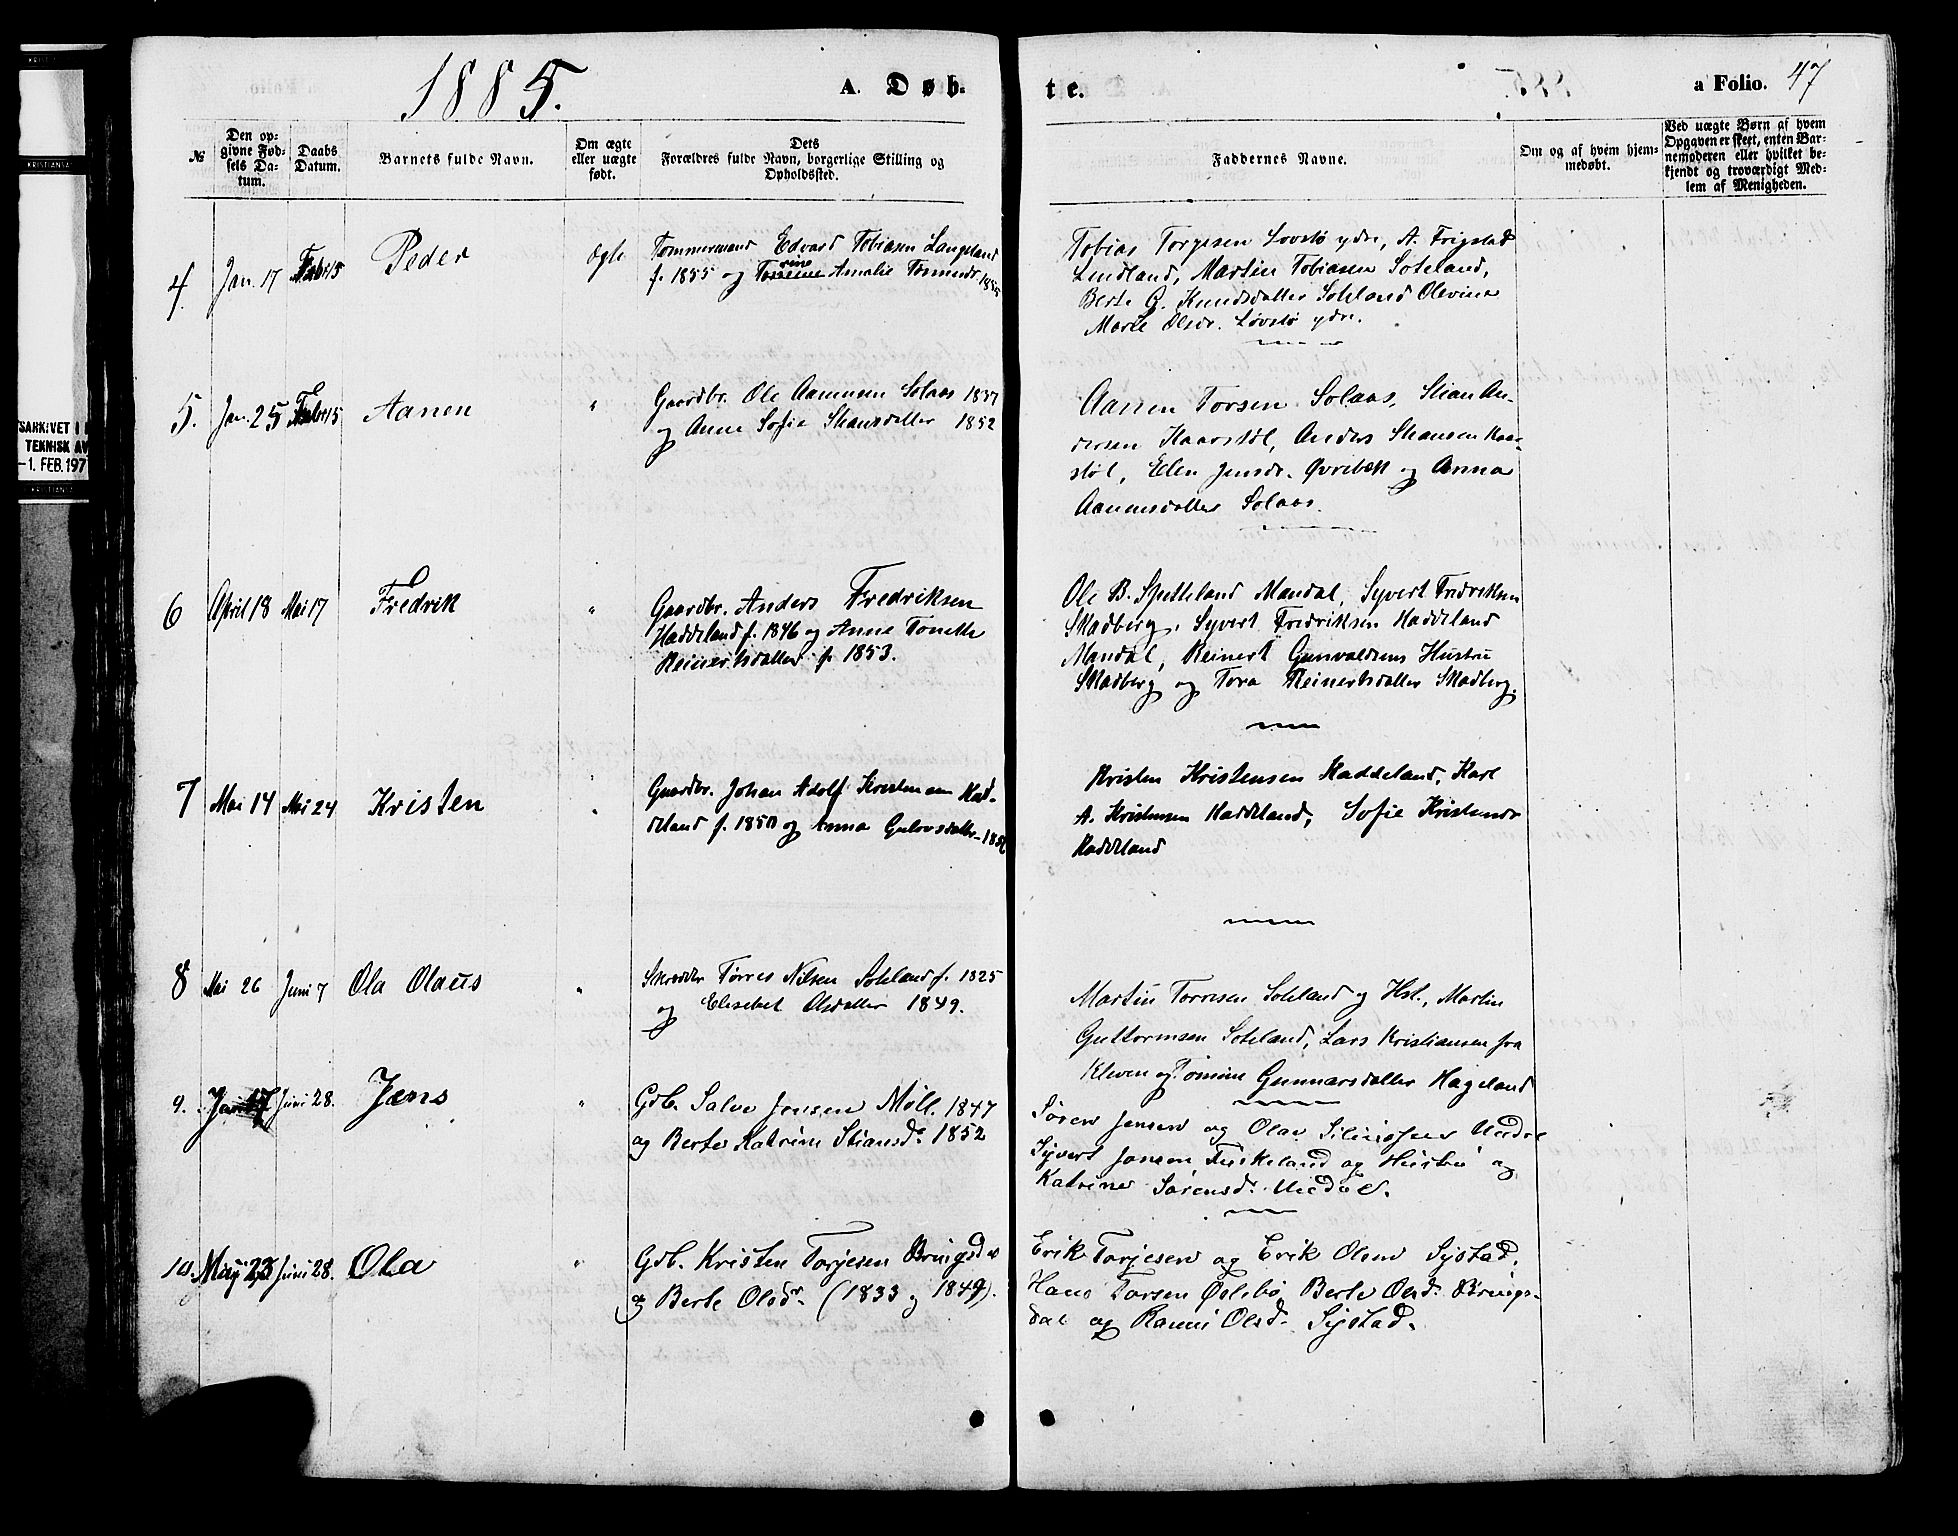 1885.
A. Døb-
te.
a Folio. 47
№
Den op-
givne Fød-
sels Da-
tum.
Daabs
Datum.
Barnets fulde Navn.
Om ægte
eller uægte
født.
Dets
Forældres fulde Navn, borgerlige Stilling og
Opholdssted.
Faddernes Navne.
Om og af hvem hjem-
medøbt.
Ved uægte Børn af hvem
Opgaven er skeet, enten Bar-
nemoderen eller hvilket be-
kjendt og troværdigt Med-
lem af Menigheden.
4. Jan. 17 Febr 15 Peder ægte
Tømmermand Edvard Tobiasen Langeland
f. 1855 og Amalie 1855
Tobias Torgesen Lovstø ydre, A. Frigstad
Lindland, Martin Tobiasen Soteland,
Berte G. Knudsdatter Soteland Olevine
Marte Olsdr. Løvstø ydre.
5. Jan. 25 Febr 15 Aanen "
Gaardbr. Ole Aanensen Solaas 1837
og Anne Sofie Stiansdatter 1852
Aanen Torsen Solaas, Stian An-
dersen Haarstøl, Anders Stiansen Haar-
støl, Elen Jensdr. Øvrebøk og Anna
Aanensdatter Solaas.
6 April 18 Mai 17 Fredrik "
Gaardbr. Anders Fredriksen
Haddeland f. 1846 og Anne Tonette
Reinertsdatter f. 1853.
Ole B. Spetteland Mandal, Syvert Fredriksen
Skadberg, Syvert Fredriksen Haddeland
Mandal, Reinert Gunvaldsens Hustru
Skadberg og Tora Reinertsdatter Skadberg.
7 Mai 14 Mai 24 Kristen "
Gaardbr. Johan Adolf Kristensen Had-
deland f. 1850 og Anna Gulovsdatter
Kristen Kristensen Haddeland, Karl
A. Kristensen Haddeland, Sofie Kristensdr
Haddeland
8 Mai 26 Juni 7 Ola Olaus "
Skrædder Tørres Nilsen Soteland f. 1825
og Elisebet Olsdatter 1849.
Martin Torresen Soteland og Hst., Martin
Guttormsen Soteland, Lars Kristiansen fra
Kleven og Tomine Gunnarsdatter Hageland
9. Juni 28. Jens "
Gdb. Salve Jensen Møll. 1847
og Berte Katrine Stiansd. 1852
Søren Jensen og Olav Uedal
Syvert Jensen Fuskeland og Hustru og
Katrine Sørensd. Uedal.
10. May 23 Juni 28. Ola "
Gdb. Kristen Torjesen Bringsdal
og Berte Olsdr. (1833 og 1849).
Erik Torjesen og Erik Olsen Sjystad,
Hans Torsen Øslebø, Berte Olsd. Brings-
dal og Ranni Olsd. Sjystad.
KRISTIANSA
TEKNISK AV
-1. FEB. 197
KRISTIANSA